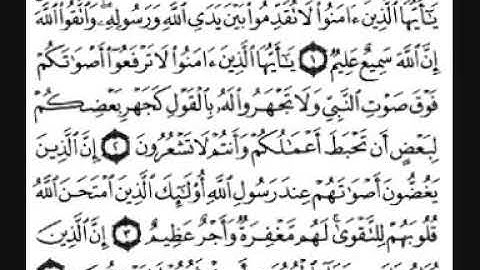 يَـٰٓأَيُّهَا ٱلَّذِينَ ءَامَنُوا۟ لَا تُقَدِّمُوا۟ بَيْنَ يَدَىِ ٱللَّهِ وَرَسُولِهِۦ ۖ وَٱتَّقُوا۟ ٱللَّهَ
إِنَّ ٱللَّهَ سَمِيعٌ عَلِيمٌ ١ يَـٰٓأَيُّهَا ٱلَّذِينَ ءَامَنُوا۟ لَا تَرْفَعُوٓا۟ أَصْوَٰتَكُمْ
فَوْقَ صَوْتِ ٱلنَّبِىِّ وَلَا تَجْهَرُوا۟ لَهُۥ بِٱلْقَوْلِ كَجَهْرِ بَعْضِكُمْ
لِبَعْضٍ أَن تَحْبَطَ أَعْمَـٰلُكُمْ وَأَنتُمْ لَا تَشْعُرُونَ ٢ إِنَّ ٱلَّذِينَ
يَغُضُّونَ أَصْوَٰتَهُمْ عِندَ رَسُولِ ٱللَّهِ أُو۟لَـٰٓئِكَ ٱلَّذِينَ ٱمْتَحَنَ ٱللَّهُ
قُلُوبَهُمْ لِلتَّقْوَىٰ ۚ لَهُم مَّغْفِرَةٌ وَأَجْرٌ عَظِيمٌ ٣ إِنَّ ٱلَّذِينَ